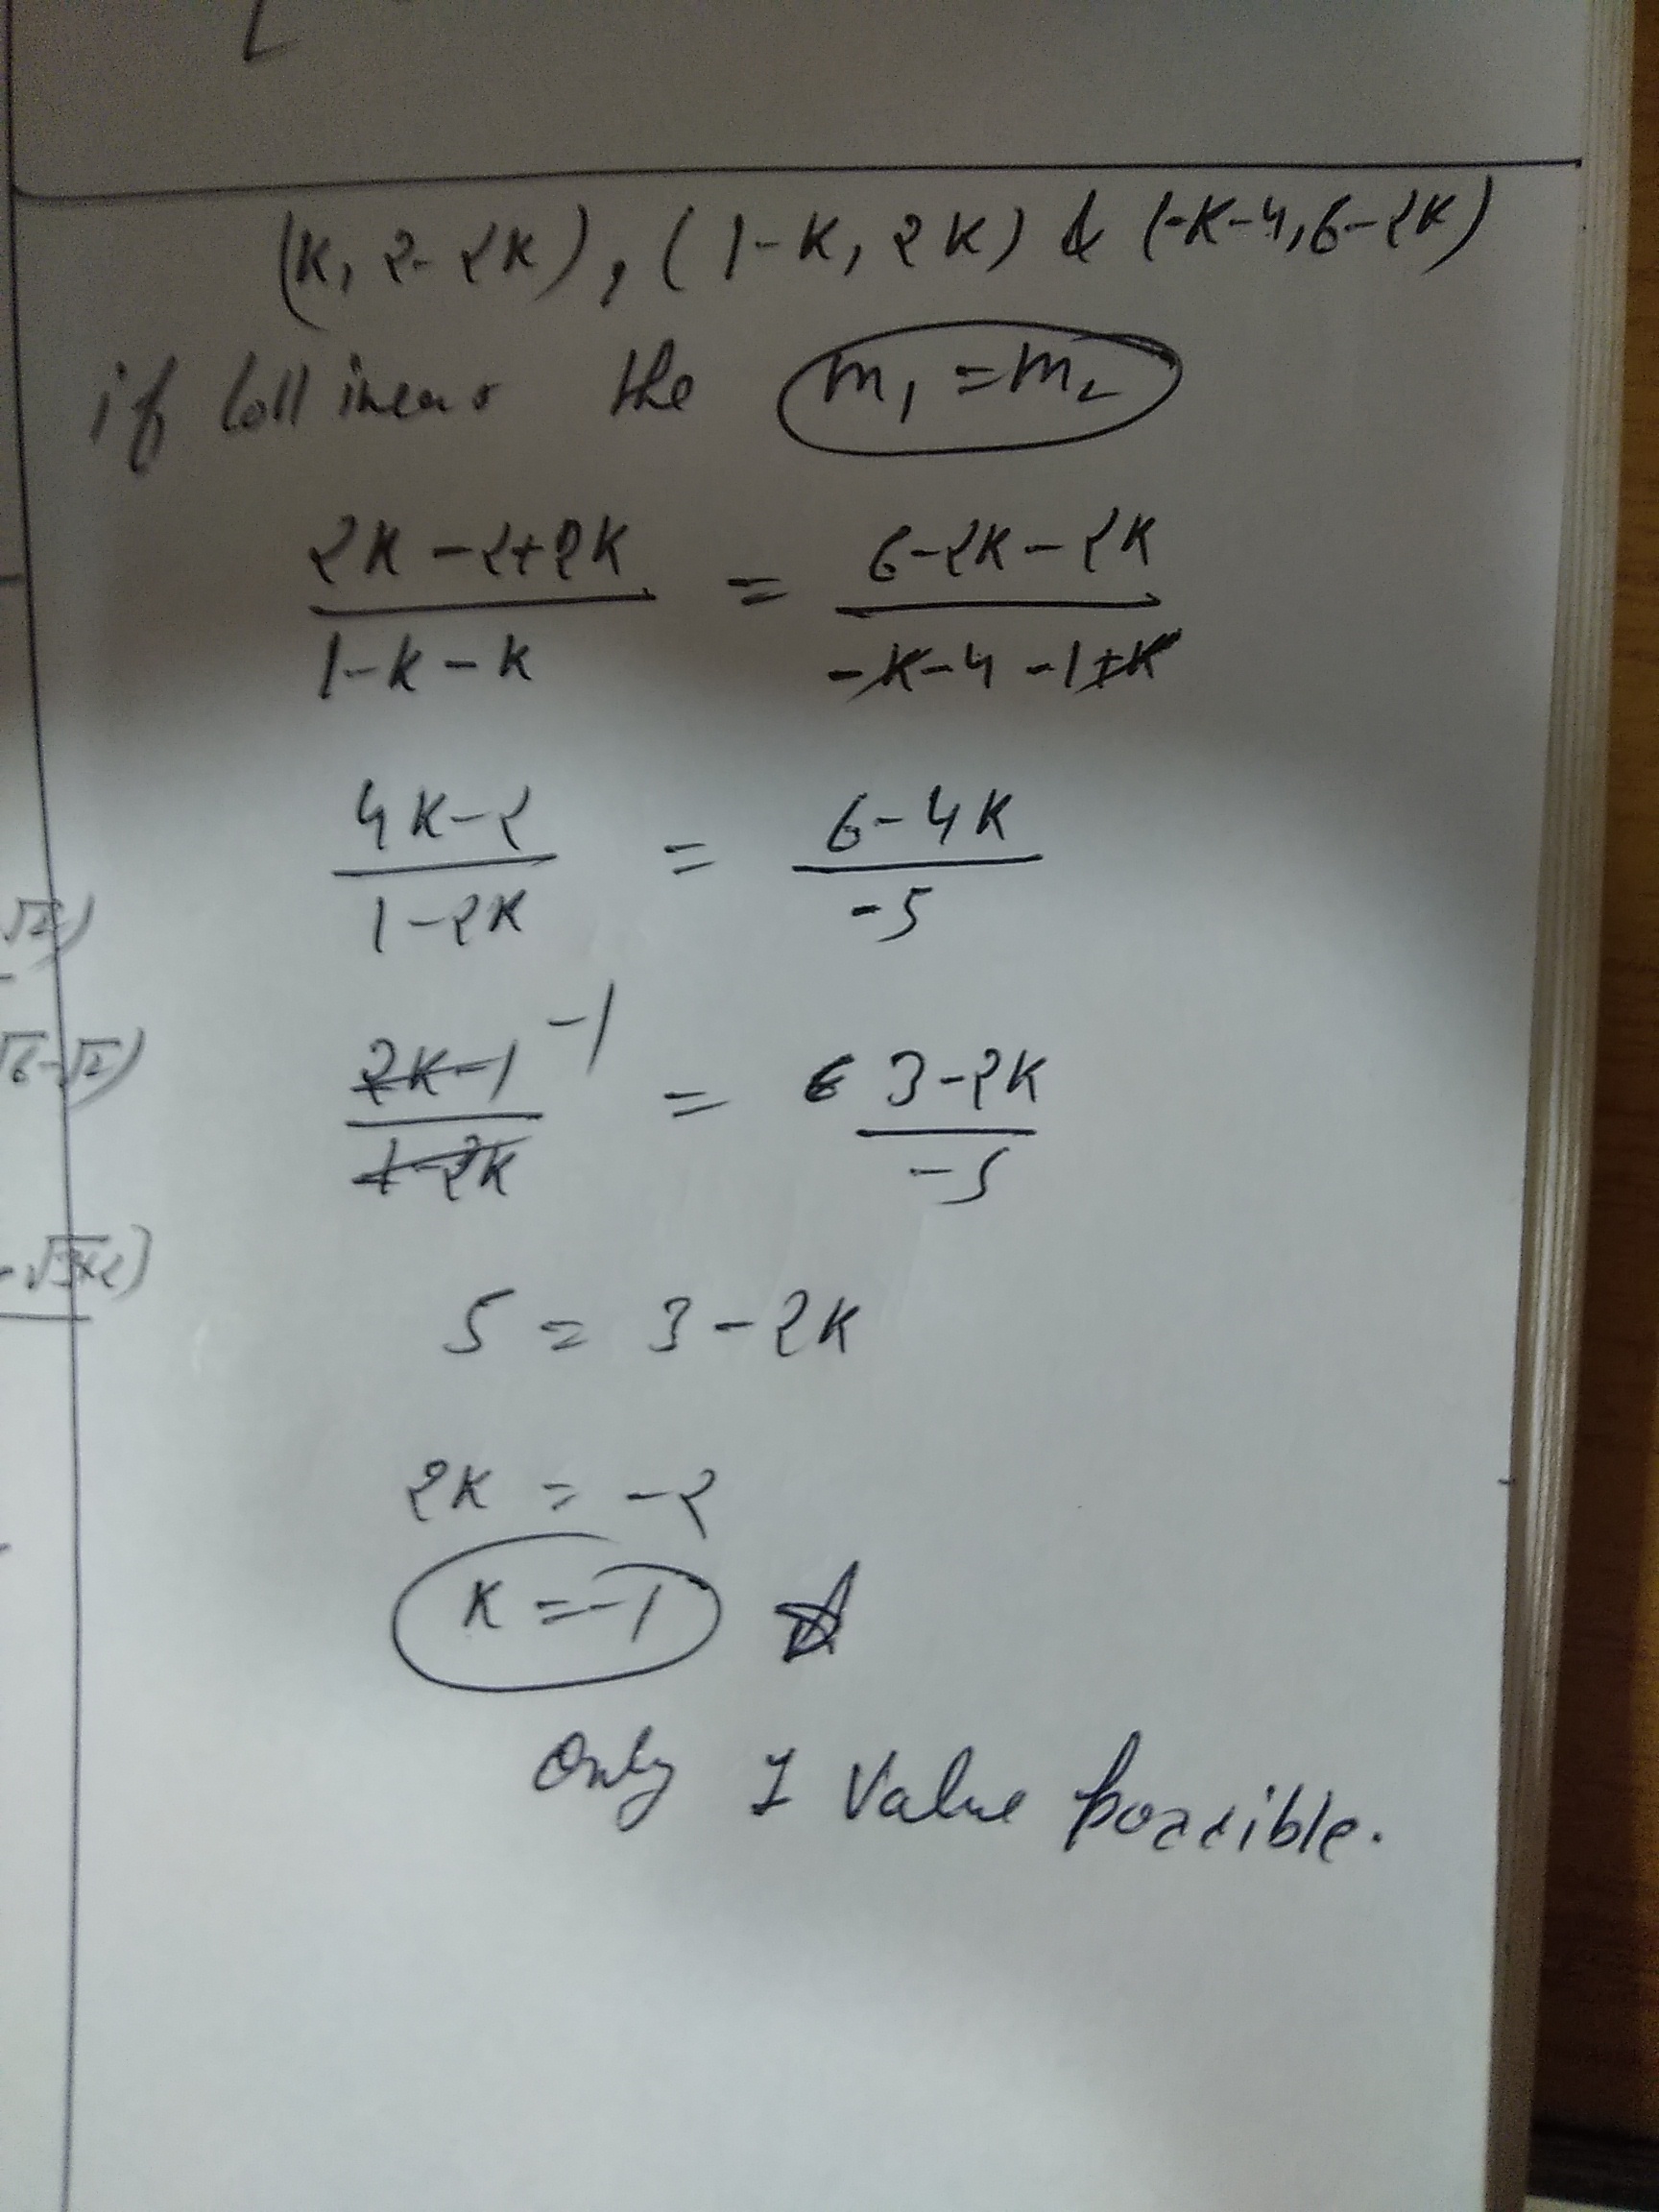 (K, 2-2K), (1-K, 2K) & (-K-4, 6-2K)
if Collinear the m₁ = m₂
2K-2+2K / 1-K-K = 6-2K-2K / -K-4-1+K
4K-2 / 1-2K = 6-4K / -5
2K-1 / 1-2K -1 = 3-2K / -5
5 = 3-2K
2K = -2
K = -1
Only 1 Value possible.
√2)
√6-√2)
-√3×2)